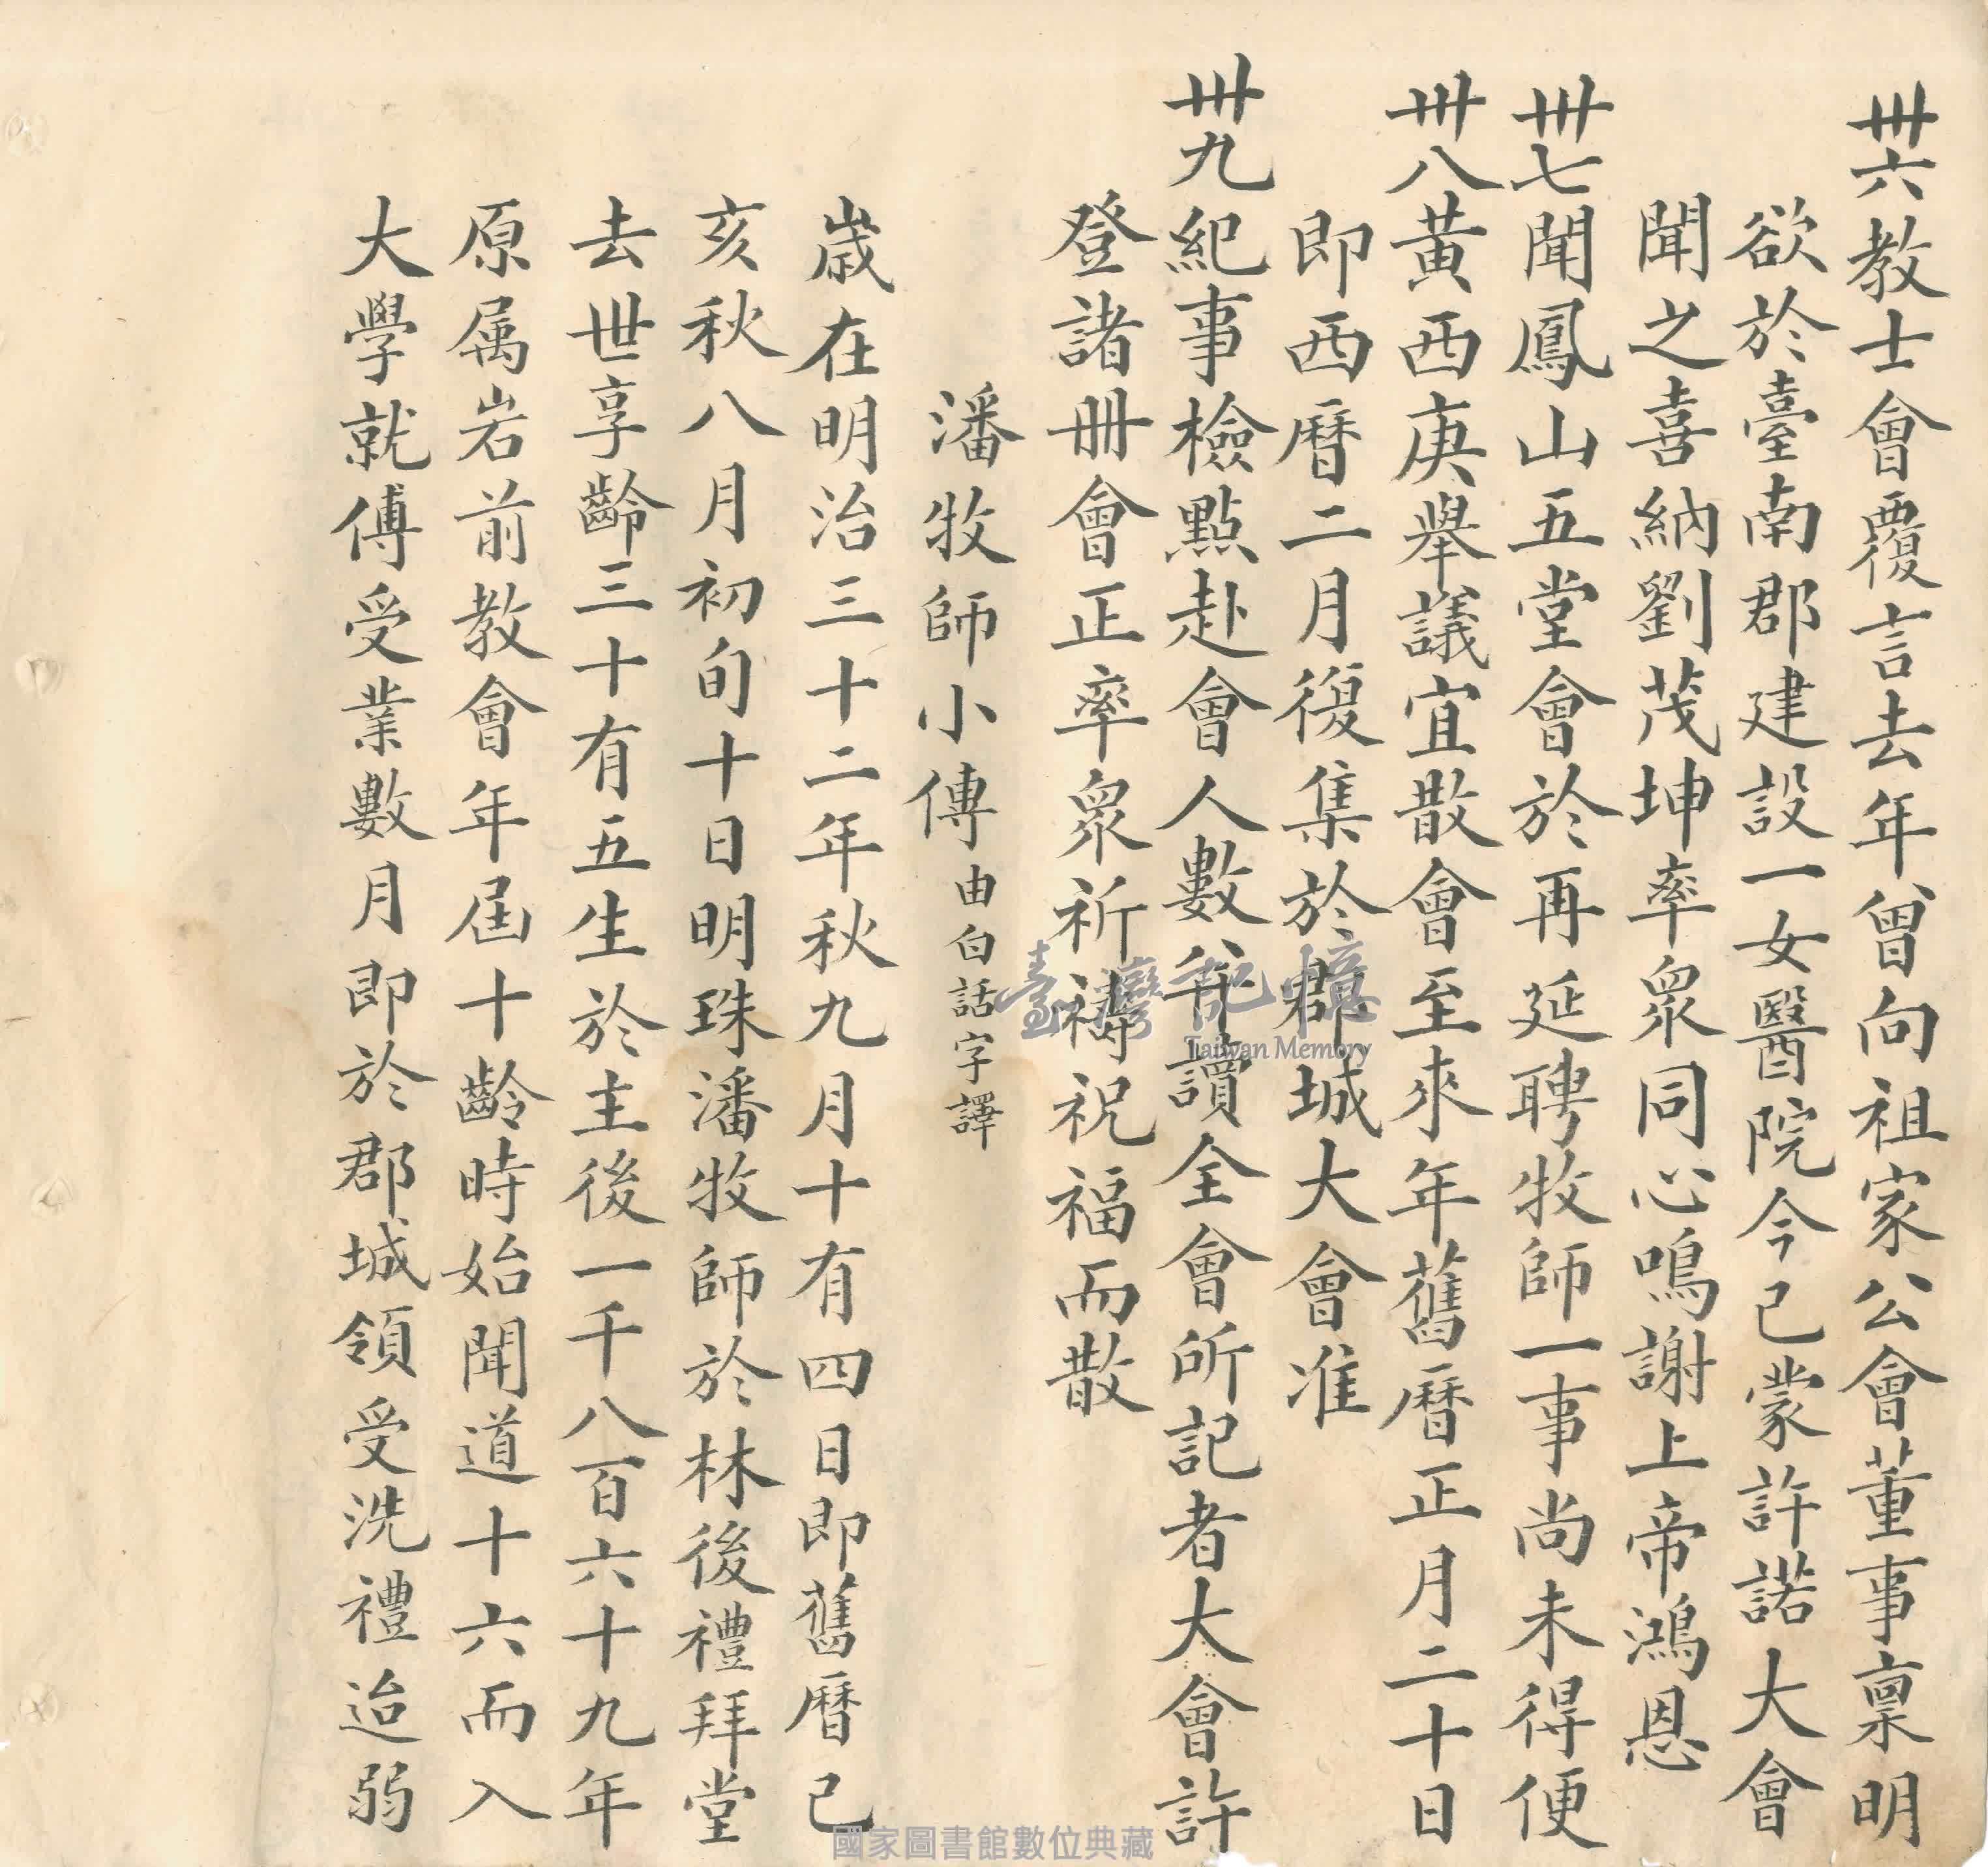 卅六教士會覆言去年曾向祖家公會董事稟明
欲於臺南郡建設一女醫院今已蒙許諾大會
聞之喜納劉茂坤率眾同心鳴謝上帝鴻恩
卅七聞鳳山五堂會於再延聘牧師一事尚未得便
卅八黃西庚舉議宜散會至來年舊曆正月二十日
即西曆二月復集於郡城大會准
卅九紀事檢點赴會人數並讀全會所記者大會許
登諸冊會正率眾祈禱祝福而散
潘牧師小傳由白話字譯
歲在明治三十二年秋九月十有四日即舊曆己
亥秋八月初旬十日明珠潘牧師於林後禮拜堂
去世享齡三十有五生於主後一千八百六十九年
原属岩前教會年屆十齡時始聞道十六而入
大學就傅受業數月即於郡城領受洗禮迨弱
臺灣記憶
Taiwan Memory
國家圖書館數位典藏